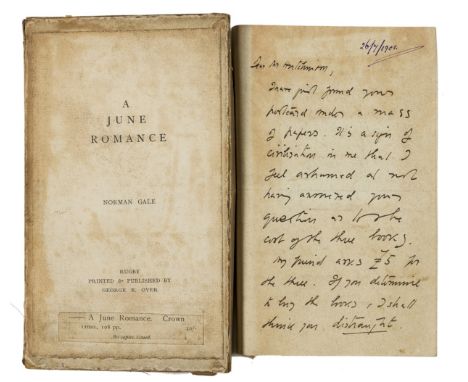 A
JUNE
ROMANCE
NORMAN GALE
RUGBY
PRINTED & PUBLISHED BY
GEORGE E. OVER
A June Romance. Crown
12mo, 108 pp.
26/7/1901
Dear Mr Hutchinson,
I have just found your
postcard under a mass
of papers. It's a sign of
civilisation in me that I
feel ashamed at not
having answered your
question as to the
cost of the three books.
My friend asks £5 for
the three. If you determine
to buy the books, I shall
think you distraught.